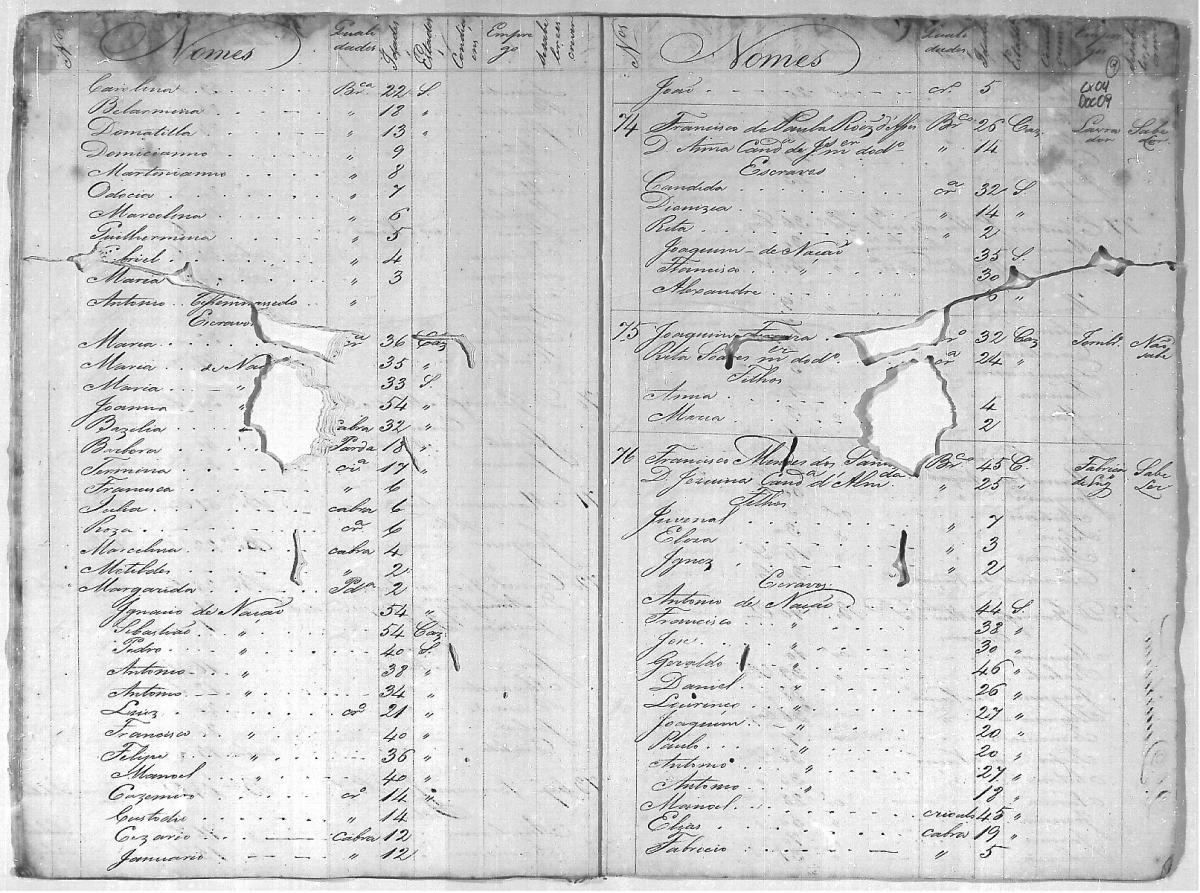 Nos Nomes Quali dades Idades Estados Condi ões Empre go
Carolina Brca 22 S.
Belarmina " 18 "
Domatilla " 13 "
Domicianno " 9
Martinianno " 8
Odocia " 7
Marcelina " 6
Guilhermina " 5
briel " 4
Maria " 3
Antonio "
Escravos
Maria 36 Caz
Maria de Naç 35 "
Maria " 33 S.
Joanna " 54 "
Bazelia cabra 32 "
Barbora Parda 18 "
Fermina cra 17 "
Francisca " 6
Julia cabra 6
Roza cra 6
Marcelina cabra 4
Metildes " 2
Margarida Pda 2
Ignacio de Nação 54 "
Sebastião " 54 Caz
Pedro " 40 S.
Antonio " 38 "
Antonio " 34 "
Luiz cro 21 "
Francisco " 40 "
Felipe " 36 "
Manoel " 40 "
Cazemiro cro 14 "
Custodio " 14
Cezario cabra 12
Januario " 12
Nos Nomes Quali dades Idades Estados Empre go
João cro 5
Cx04
Doc09
74 Francisco de Paula Brco 26 Caz Lavra dor Sabe Ler
D. Anna Canda de mer do do " 14
Escravos
Candida cra 32 S.
Dionizia " 14 "
Rita " 2
Joaquim de Nação 35 S.
Francisco " 30
Alexandre "
75 Joaquim 32 Caz Não Sabe
Rita Soares mer do do cra 24 "
Filhos
Anna 4
Maria 2
76 Francisco Mendes dos Brco 45 C. Fabrica de Engo Sabe Ler
D. Canda d' Alm. " 25 "
Filhos
Juvenal " 7
Eloza " 3
Ignez " 2
Escravos
Antonio de Nação 44 S.
Francisco " 38 "
Jose " 30 "
Geraldo " 46 "
Daniel " 26 "
Lourenco " 27 "
Joaquim " 20 "
Paulo " 20 "
Antonio " 27 "
Antonio " 18 "
Manoel crioulo 45 "
Elias cabra 19 "
Fabricio " 5